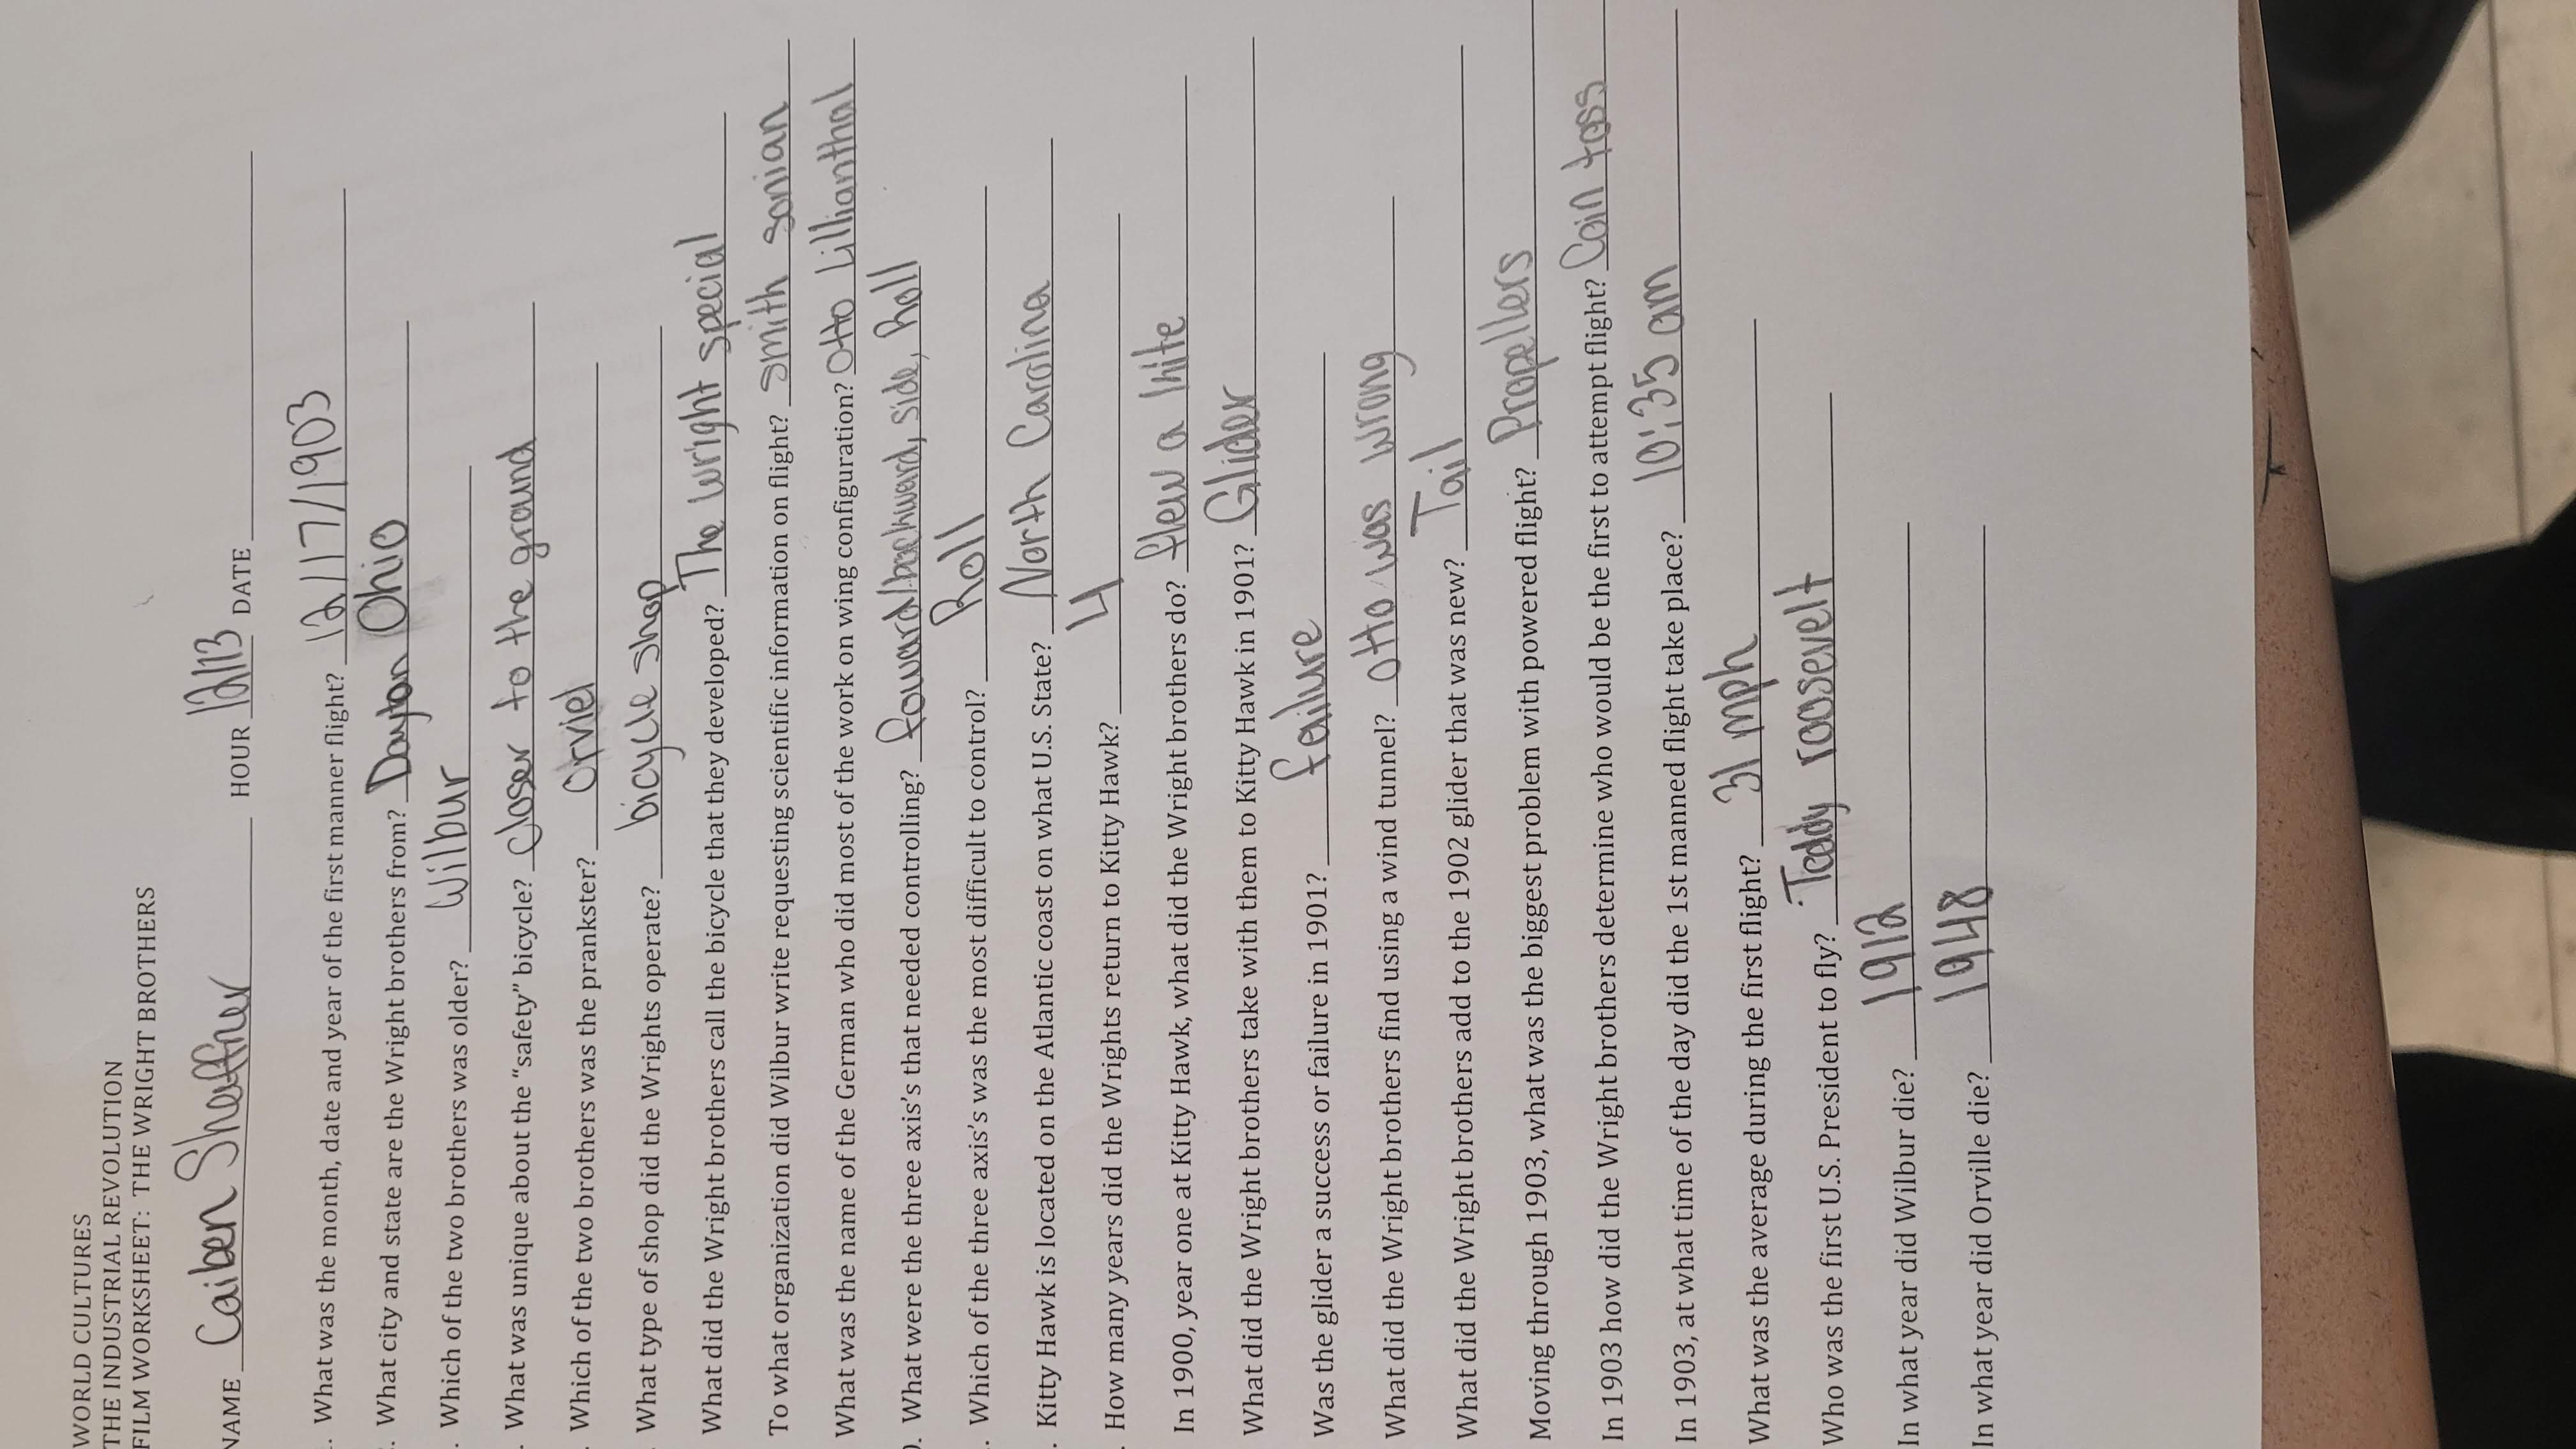 WORLD CULTURES
THE INDUSTRIAL REVOLUTION
FILM WORKSHEET: THE WRIGHT BROTHERS
NAME Caiben Sheffner HOUR 12/13 DATE
. What was the month, date and year of the first manner flight? 12/17/1903
. What city and state are the Wright brothers from? Dayton Ohio
. Which of the two brothers was older? Wilbur
. What was unique about the "safety" bicycle? Closer to the ground
. Which of the two brothers was the prankster? Orviel
. What type of shop did the Wrights operate? bicycle shop
What did the Wright brothers call the bicycle that they developed? The wright special
To what organization did Wilbur write requesting scientific information on flight? smith sonian
What was the name of the German who did most of the work on wing configuration? Otto Lillianthal
. What were the three axis's that needed controlling? foward/backward, side, Roll
. Which of the three axis's was the most difficult to control? Roll
. Kitty Hawk is located on the Atlantic coast on what U.S. State? North Carolina
. How many years did the Wrights return to Kitty Hawk? 4
In 1900, year one at Kitty Hawk, what did the Wright brothers do? flew a kite
What did the Wright brothers take with them to Kitty Hawk in 1901? Glider
Was the glider a success or failure in 1901? failure
What did the Wright brothers find using a wind tunnel? otto was wrong
What did the Wright brothers add to the 1902 glider that was new? Tail
Moving through 1903, what was the biggest problem with powered flight? Propellers
In 1903 how did the Wright brothers determine who would be the first to attempt flight? Coin toss
In 1903, at what time of the day did the 1st manned flight take place? 10:35 am
What was the average during the first flight? 31 mph
Who was the first U.S. President to fly? Teddy roosevelt
In what year did Wilbur die? 1912
In what year did Orville die? 1948